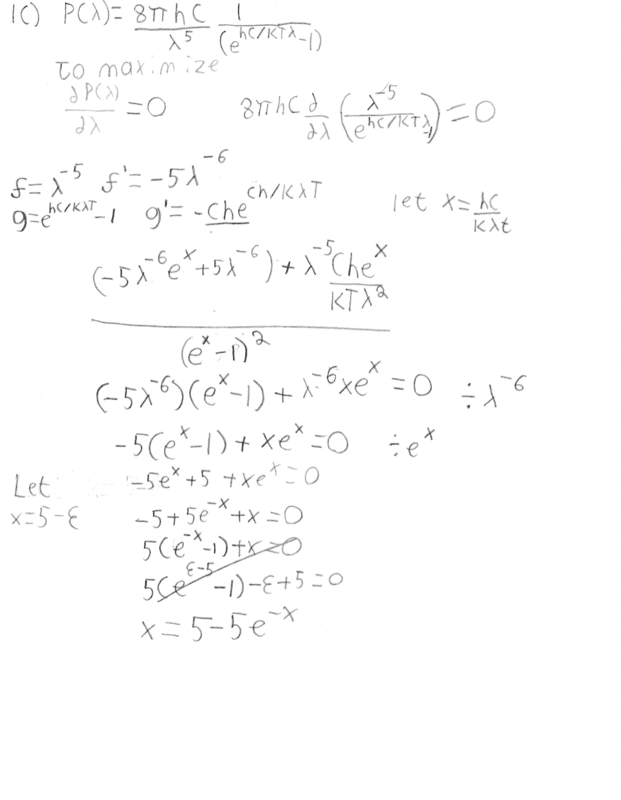 1C) P(λ) = 8πhC/λ^5 1/(e^(hC/KTλ)-1)
To maximize
∂P(λ)/∂λ = 0    8πhC ∂/∂λ (λ^-5/(e^(hC/KTλ)-1)) = 0
f = λ^-5  f' = -5λ^-6
g = e^(hC/KλT)-1  g' = -Ch e^(Ch/KλT)    let x = hC/Kλt
((-5λ^-6 e^x + 5λ^-6) + λ^-5 Ch e^x/KTλ^2)/(e^x-1)^2
(-5λ^-6)(e^x-1) + λ^-6 x e^x = 0  ÷ λ^-6
-5(e^x-1) + x e^x = 0  ÷ e^x
Let  -5e^x + 5 + x e^x = 0
x = 5-ε  -5 + 5e^-x + x = 0
5(e^-x - 1) + x = 0
5(e^(ε-5) - 1) - ε + 5 = 0
x = 5 - 5e^-x